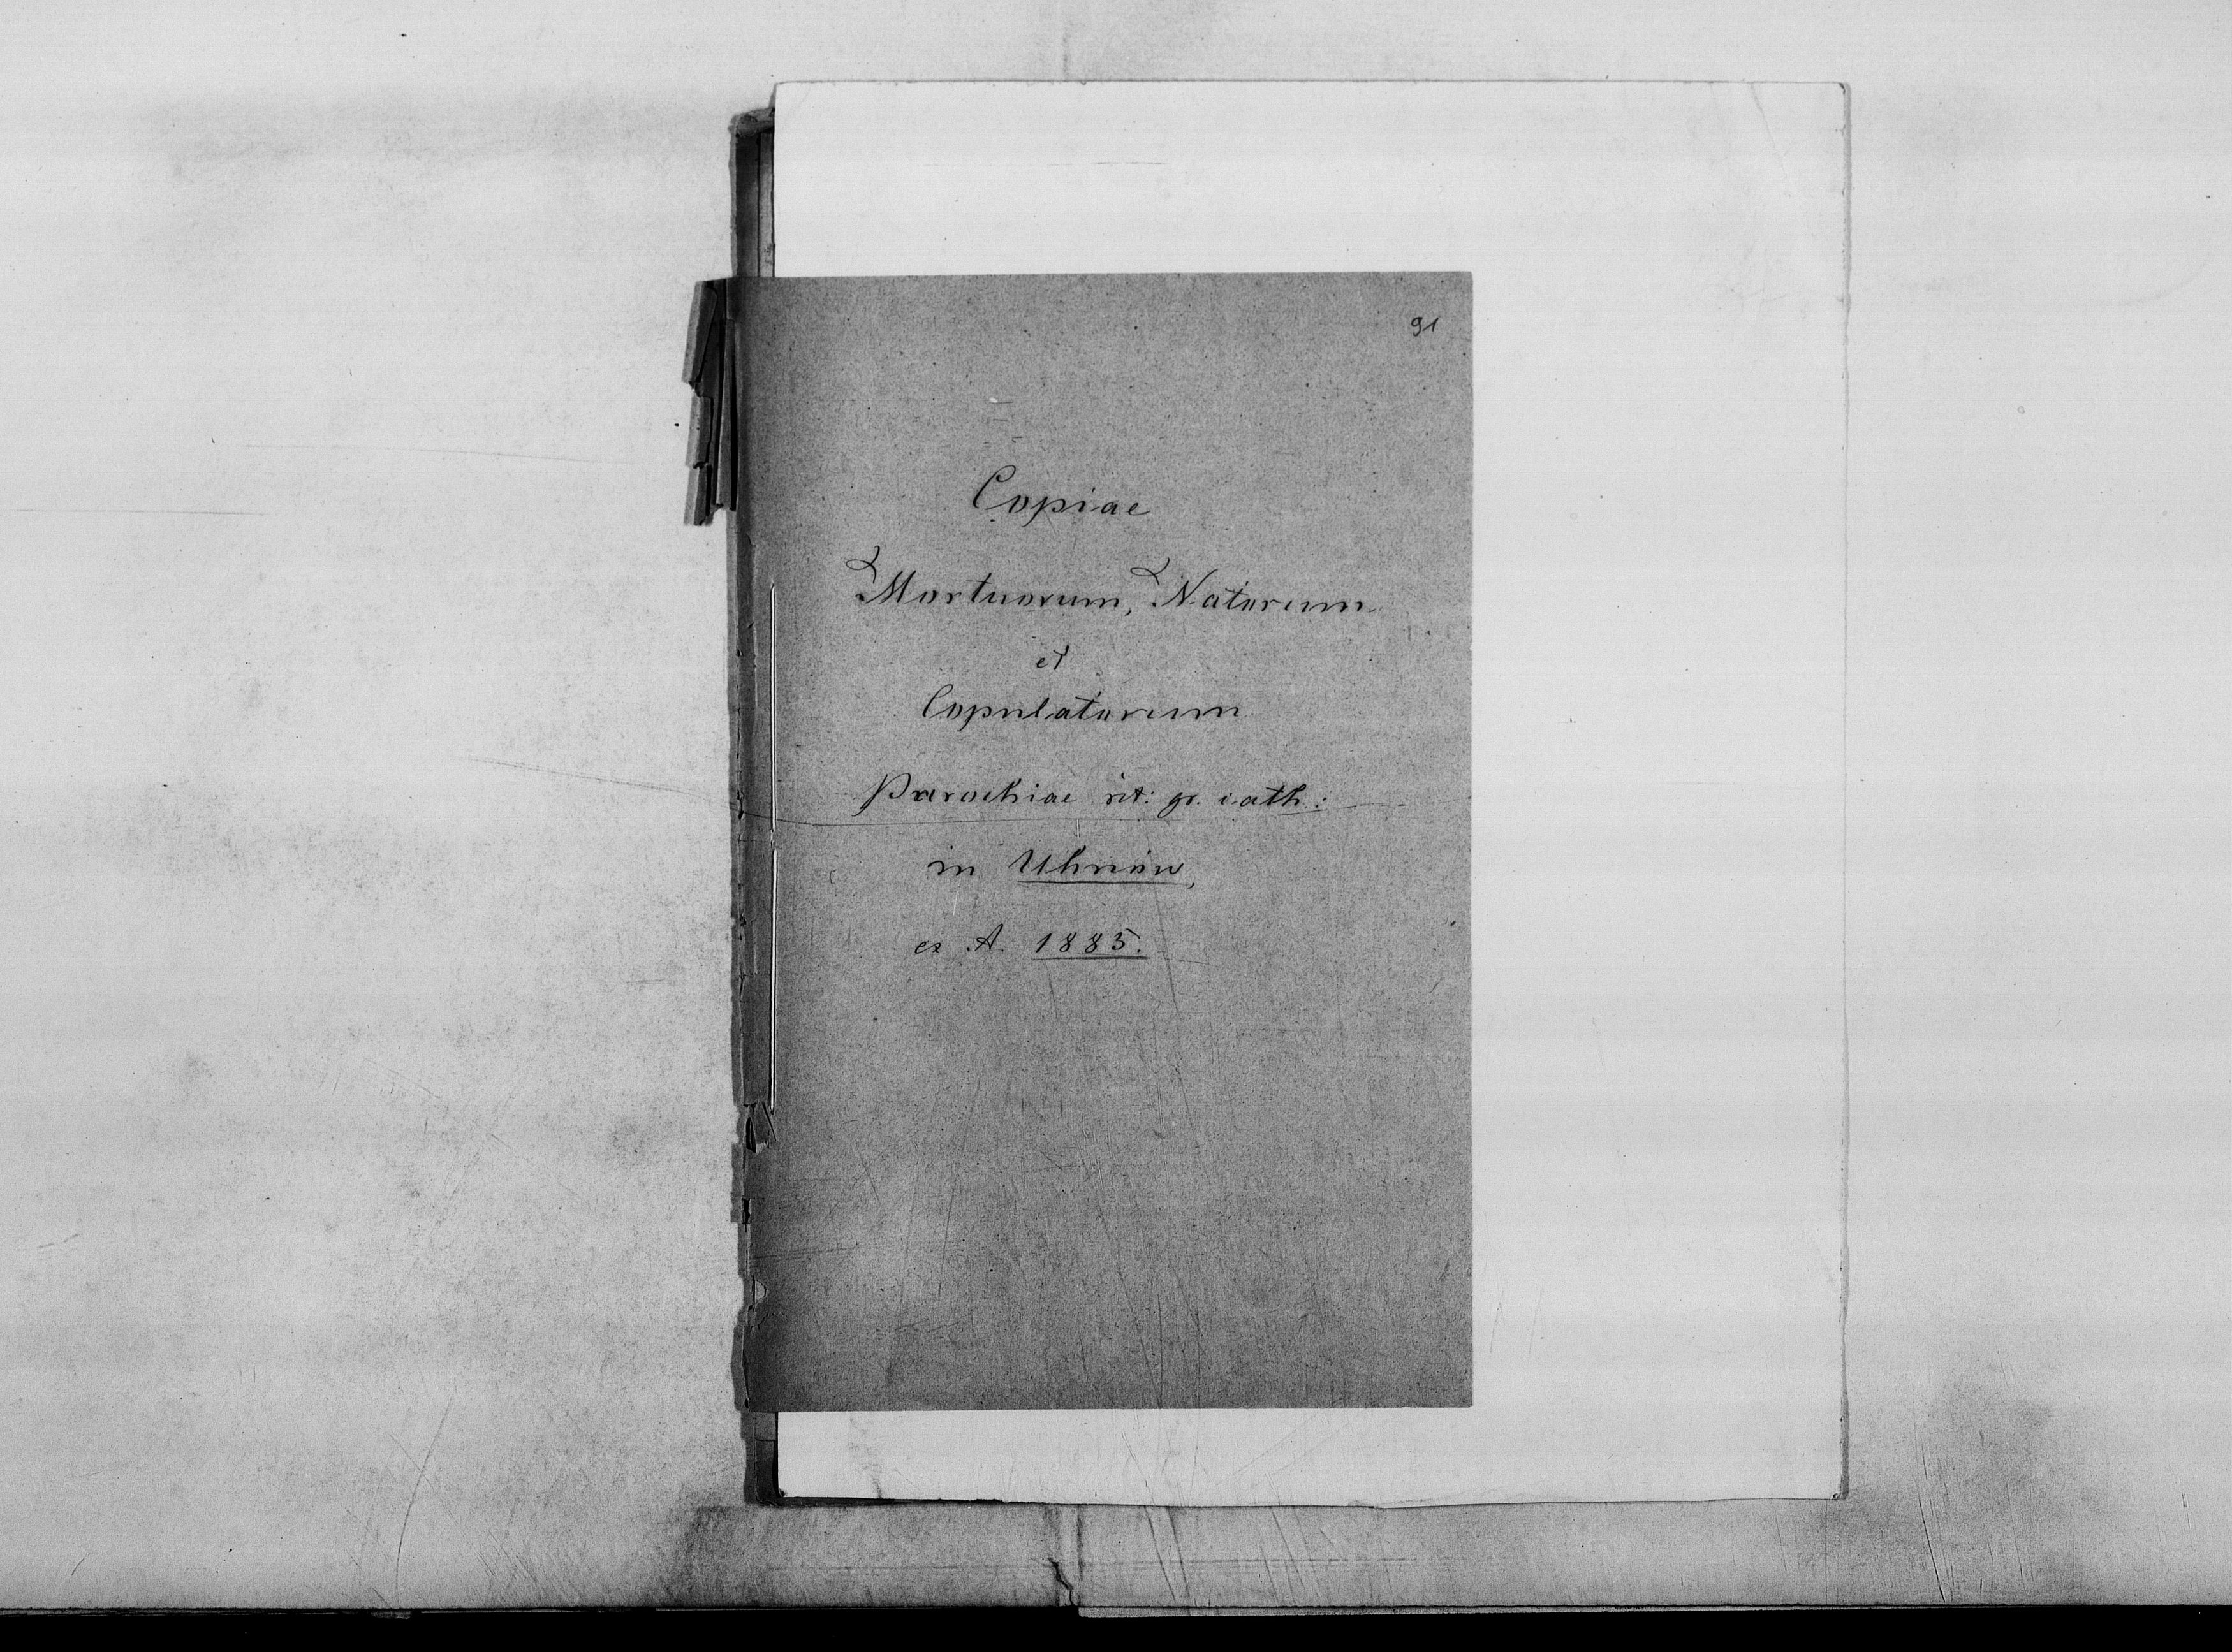 91
Copiae
Mortuorum, Natorum
et
Copulatorum
Parochiae rit: gr. cath:
in Uhnów,
ex A. 1885.